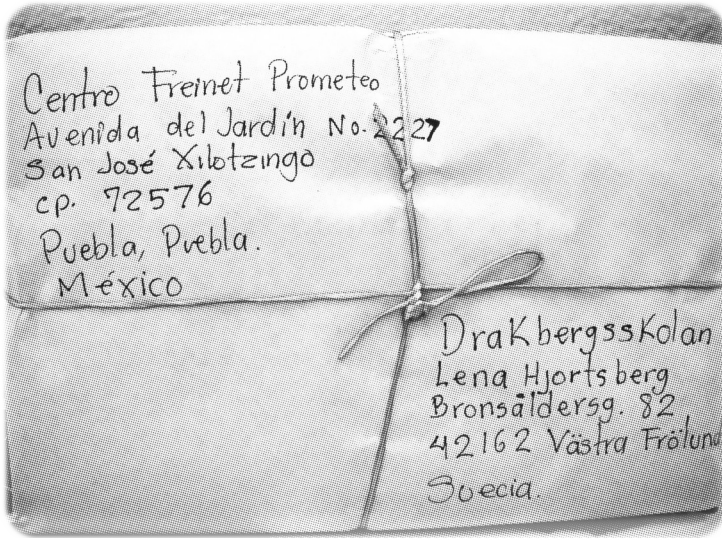 Centro Freinet Prometeo
Avenida del Jardín No. 2227
San José Xilotzingo
cp. 72576
Puebla, Puebla.
México
DraKbergssKolan
Lena Hjortsberg
Bronsåldersg. 82
42162 Västra Frölund
Suecia.